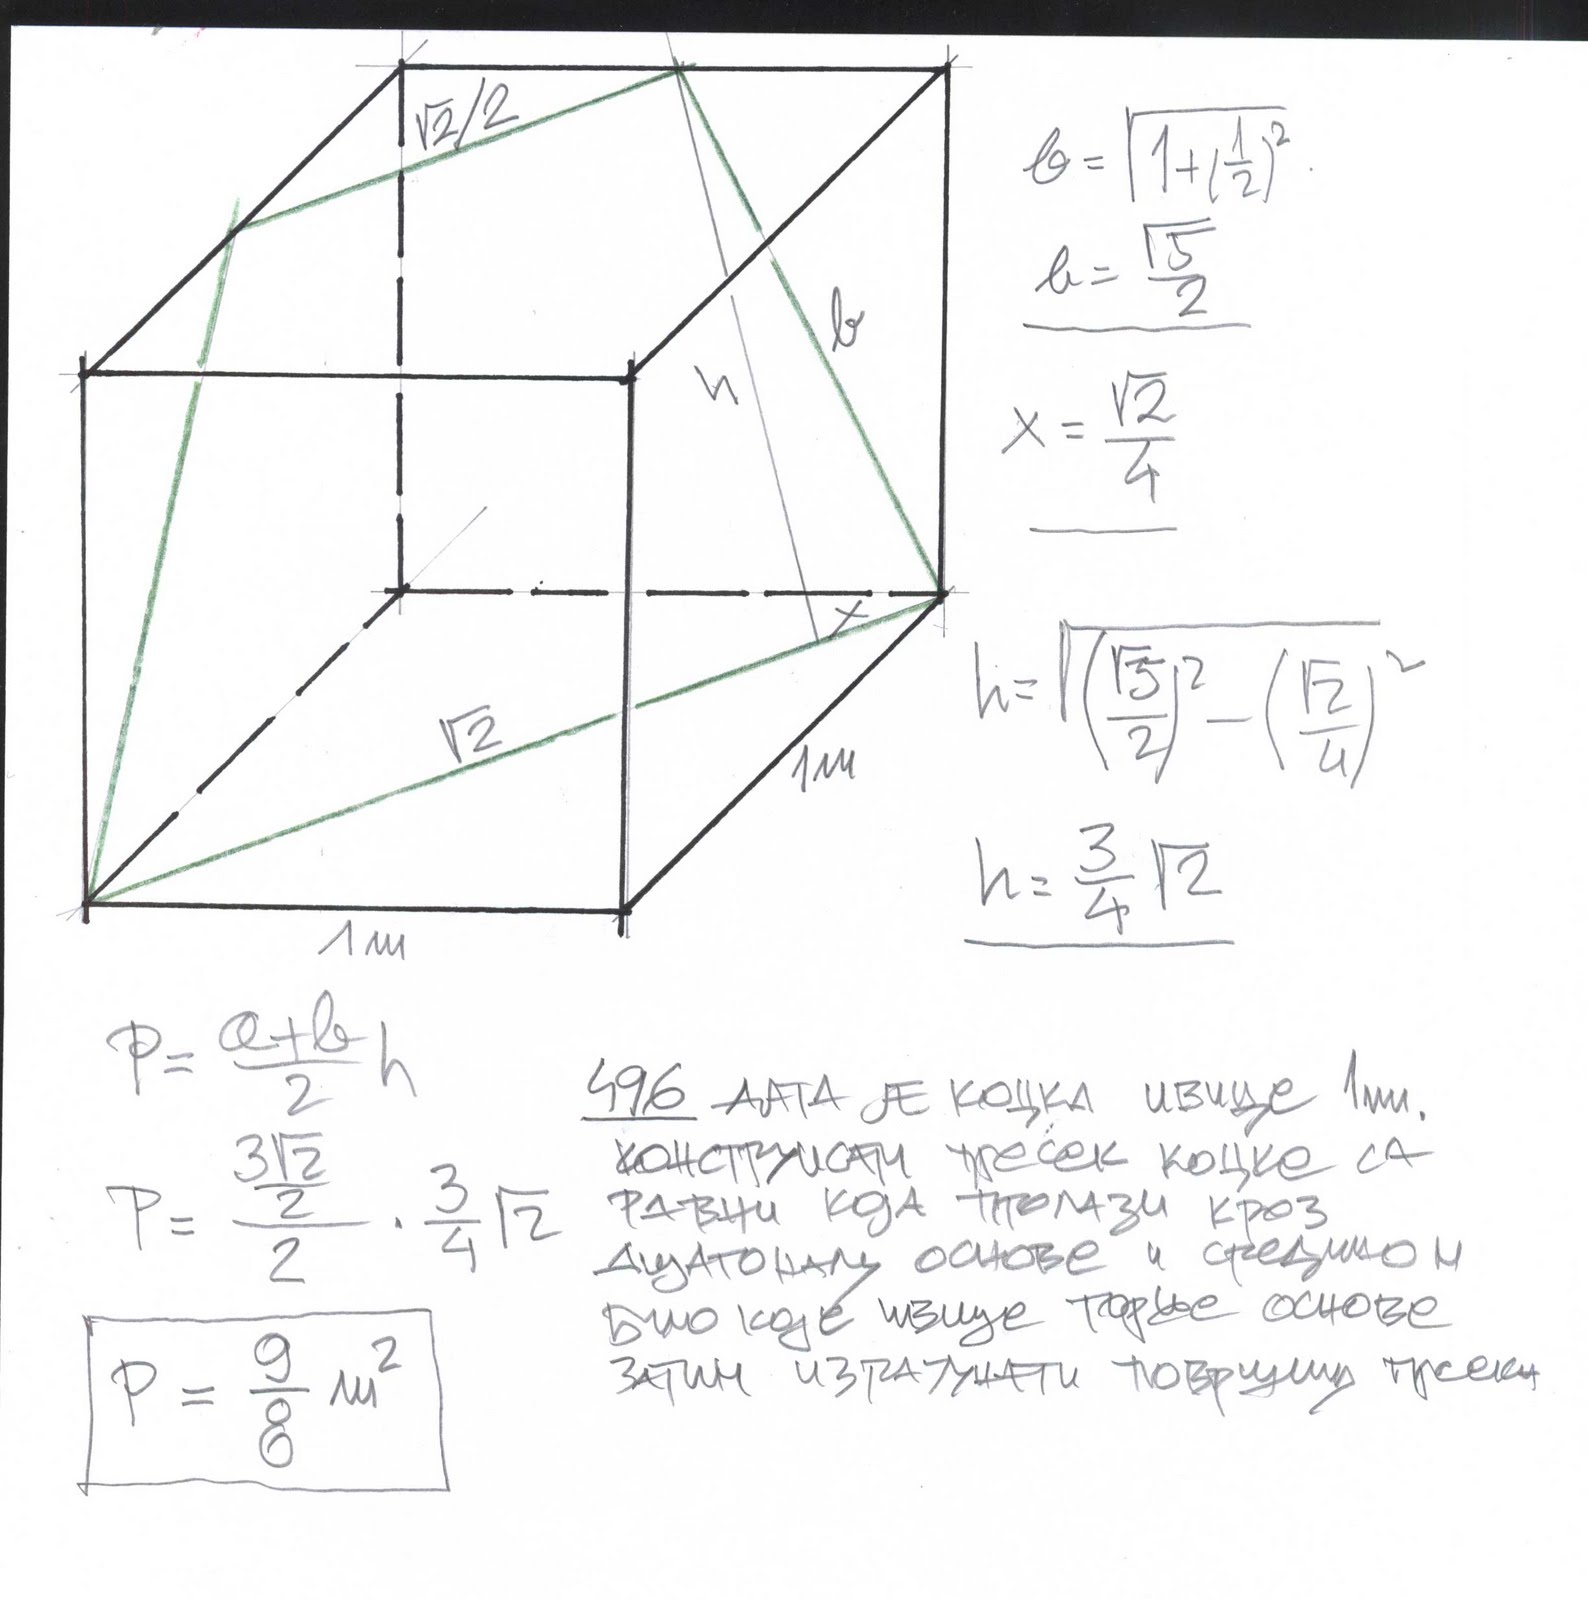 √2/2
b = √1+(1/2)²
b = √5/2
b
h
x = √2/4
x
√2
h = √(√5/2)² − (√2/4)²
1m
h = 3/4 √2
1m
P = a+b/2 h
P = 3√2/2/2 · 3/4 √2
P = 9/8 m²
496 ДАТА ЈЕ КОЦКА ИВИЦЕ 1m.
КОНСТРУИСАТИ ПРЕСЕК КОЦКЕ СА
РАВНИ КОЈА ПРОЛАЗИ КРОЗ
ДИЈАГОНАЛУ ОСНОВЕ И СРЕДИНОМ
БИЛО КОЈЕ ИВИЦЕ ГОРЊЕ ОСНОВЕ
ЗАТИМ ИЗРАЧУНАТИ ПОВРШИНУ ПРЕСЕКА